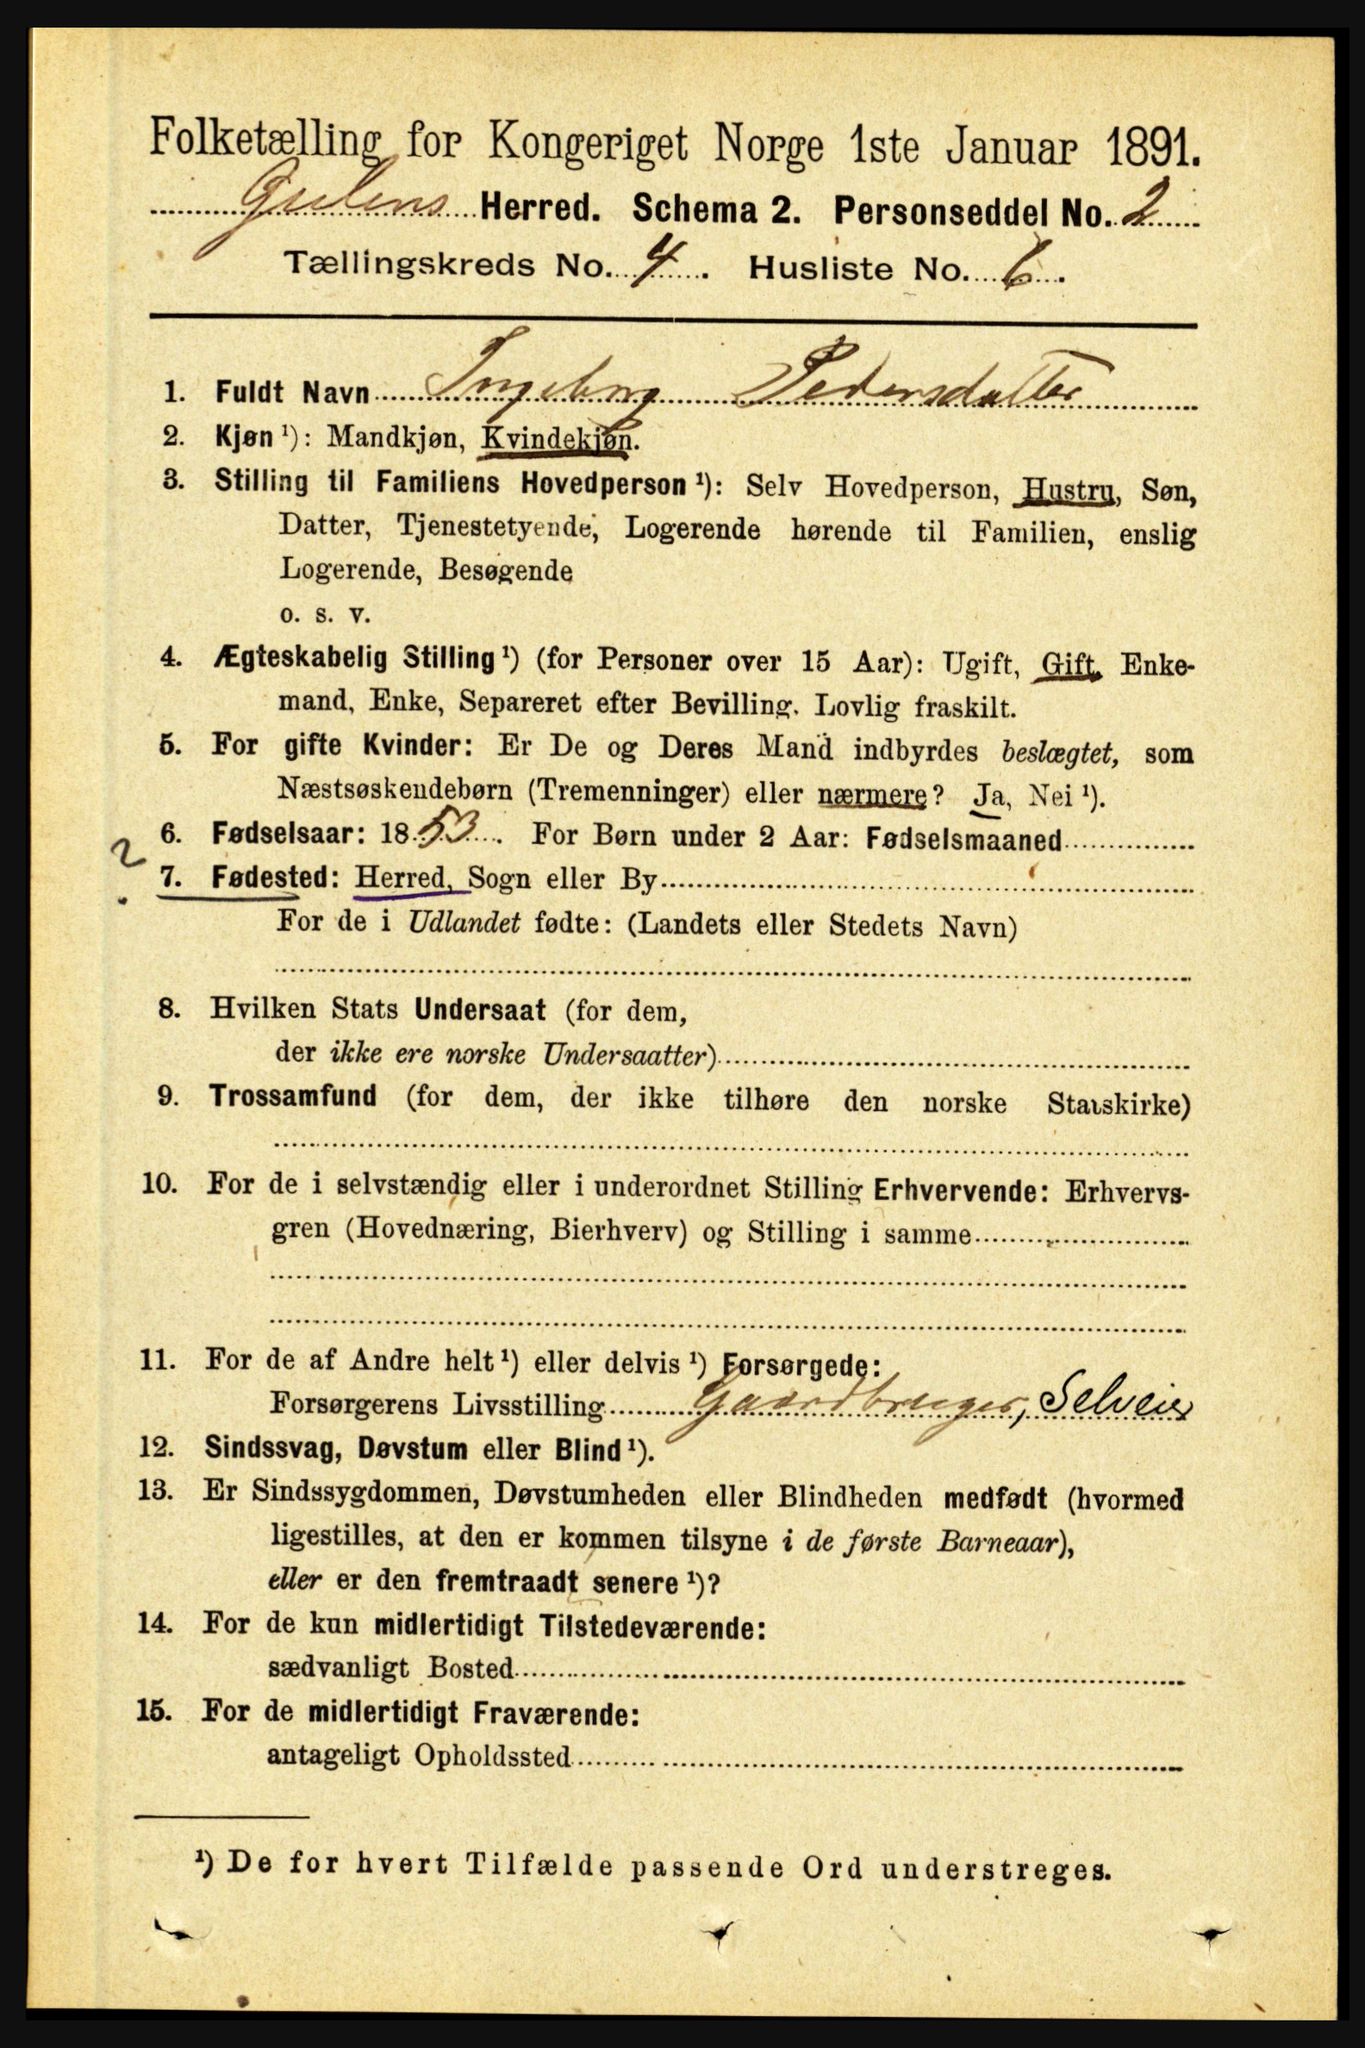 Folketælling for Kongeriget Norge 1ste Januar 1891.
Gulens Herred. Schema 2. Personseddel No. 2
Tællingskreds No. 4. Husliste No. 6.
1. Fuldt Navn Ingeborg Pedersdatter
2. Kjøn¹): Mandkjøn, Kvindekjøn.
3. Stilling til Familiens Hovedperson¹): Selv Hovedperson, Hustru, Søn,
Datter, Tjenestetyende, Logerende hørende til Familien, enslig
Logerende, Besøgende
o. s. v.
4. Ægteskabelig Stilling¹) (for Personer over 15 Aar): Ugift, Gift, Enke-
mand, Enke, Separeret efter Bevilling. Lovlig fraskilt.
5. For gifte Kvinder: Er De og Deres Mand indbyrdes beslægtet, som
Næstsøskendebørn (Tremenninger) eller nærmere? Ja, Nei¹).
6. Fødselsaar: 1853. For Børn under 2 Aar: Fødselsmaaned
? 7. Fødested: Herred, Sogn eller By
For de i Udlandet fødte: (Landets eller Stedets Navn)
8. Hvilken Stats Undersaat (for dem,
der ikke ere norske Undersaatter)
9. Trossamfund (for dem, der ikke tilhøre den norske Statskirke)
10. For de i selvstændig eller i underordnet Stilling Erhvervende: Erhvervs-
gren (Hovednæring, Bierhverv) og Stilling i samme
11. For de af Andre helt¹) eller delvis¹) Forsørgede:
Forsørgerens Livsstilling Gaardbruger, Selveier
12. Sindssvag, Døvstum eller Blind¹).
13. Er Sindssygdommen, Døvstumheden eller Blindheden medfødt (hvormed
ligestilles, at den er kommen tilsyne i de første Barneaar),
eller er den fremtraadt senere¹)?
14. For de kun midlertidigt Tilstedeværende:
sædvanligt Bosted
15. For de midlertidigt Fraværende:
antageligt Opholdssted
¹) De for hvert Tilfælde passende Ord understreges.